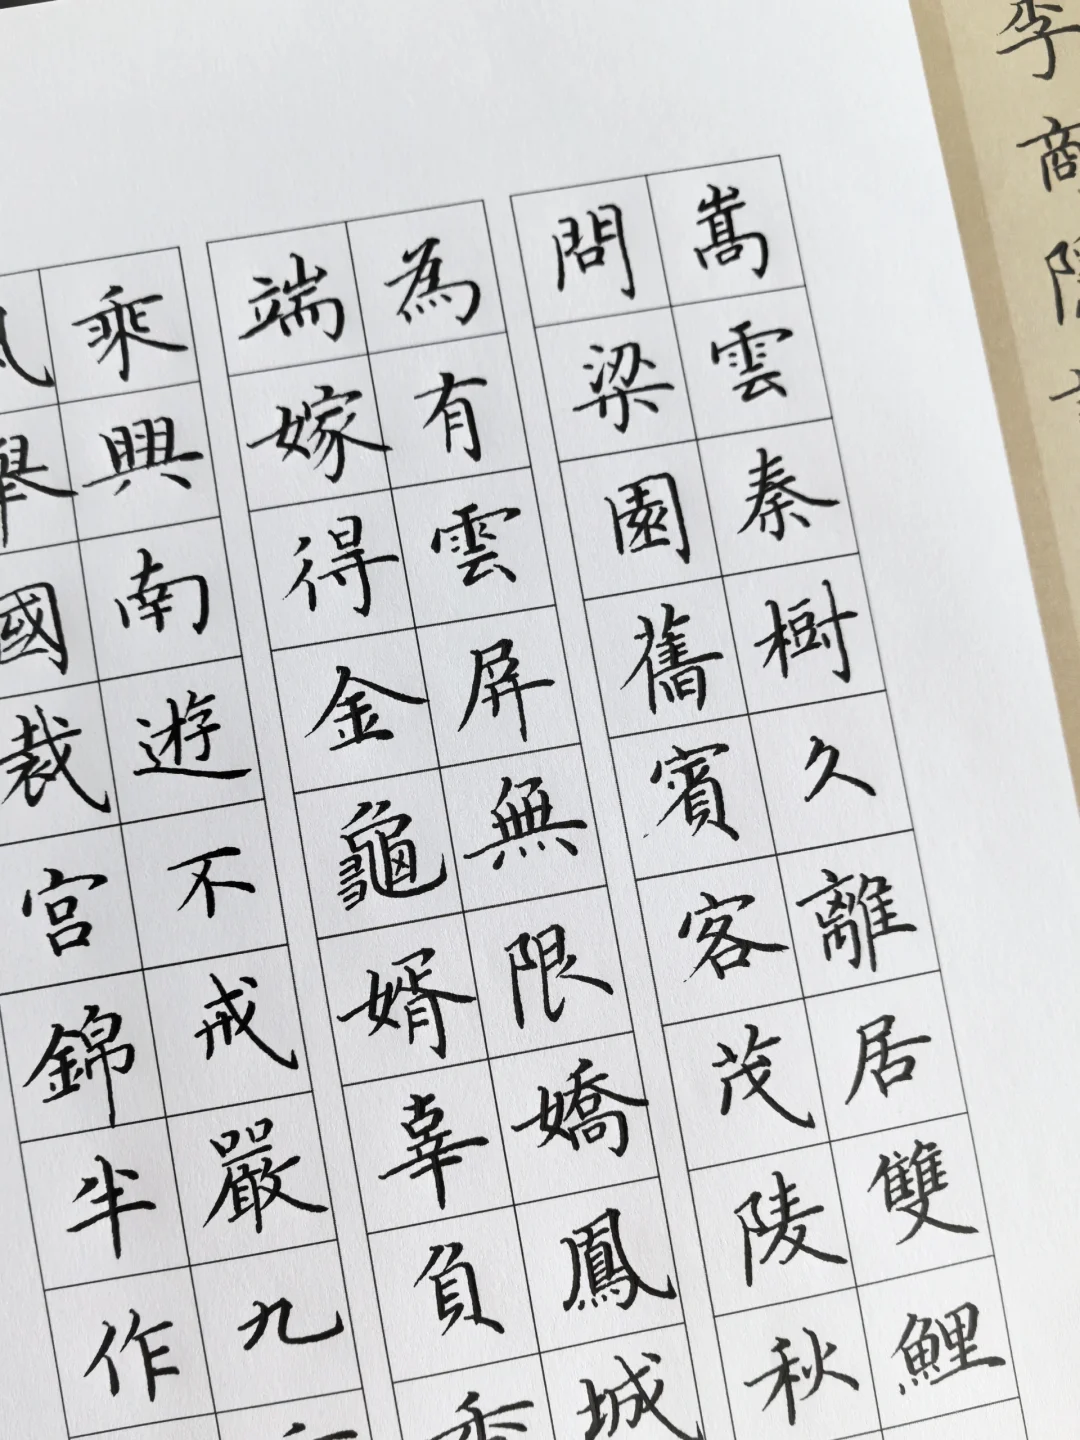 李商隱
嵩雲秦樹久離居雙鯉
問梁園舊賓客茂陵秋
為有雲屏無限嬌鳳城
端嫁得金龜婿辜負香
乘興南遊不戒嚴九
風舉國裁宮錦半作